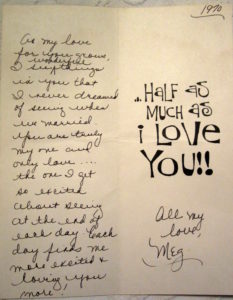 1970
As my love
for you grows,
wonderful
I see things
in you that
I never dreamed
of seeing when
we married.
you are truly
my one and
only love....
the one I get
so excited
about seeing
at the end of
each day. Each
day finds me
more excited &
loving you
more!
..HALF AS
MUCH AS
i LOVE
YOU!!
All my
love,
Meg